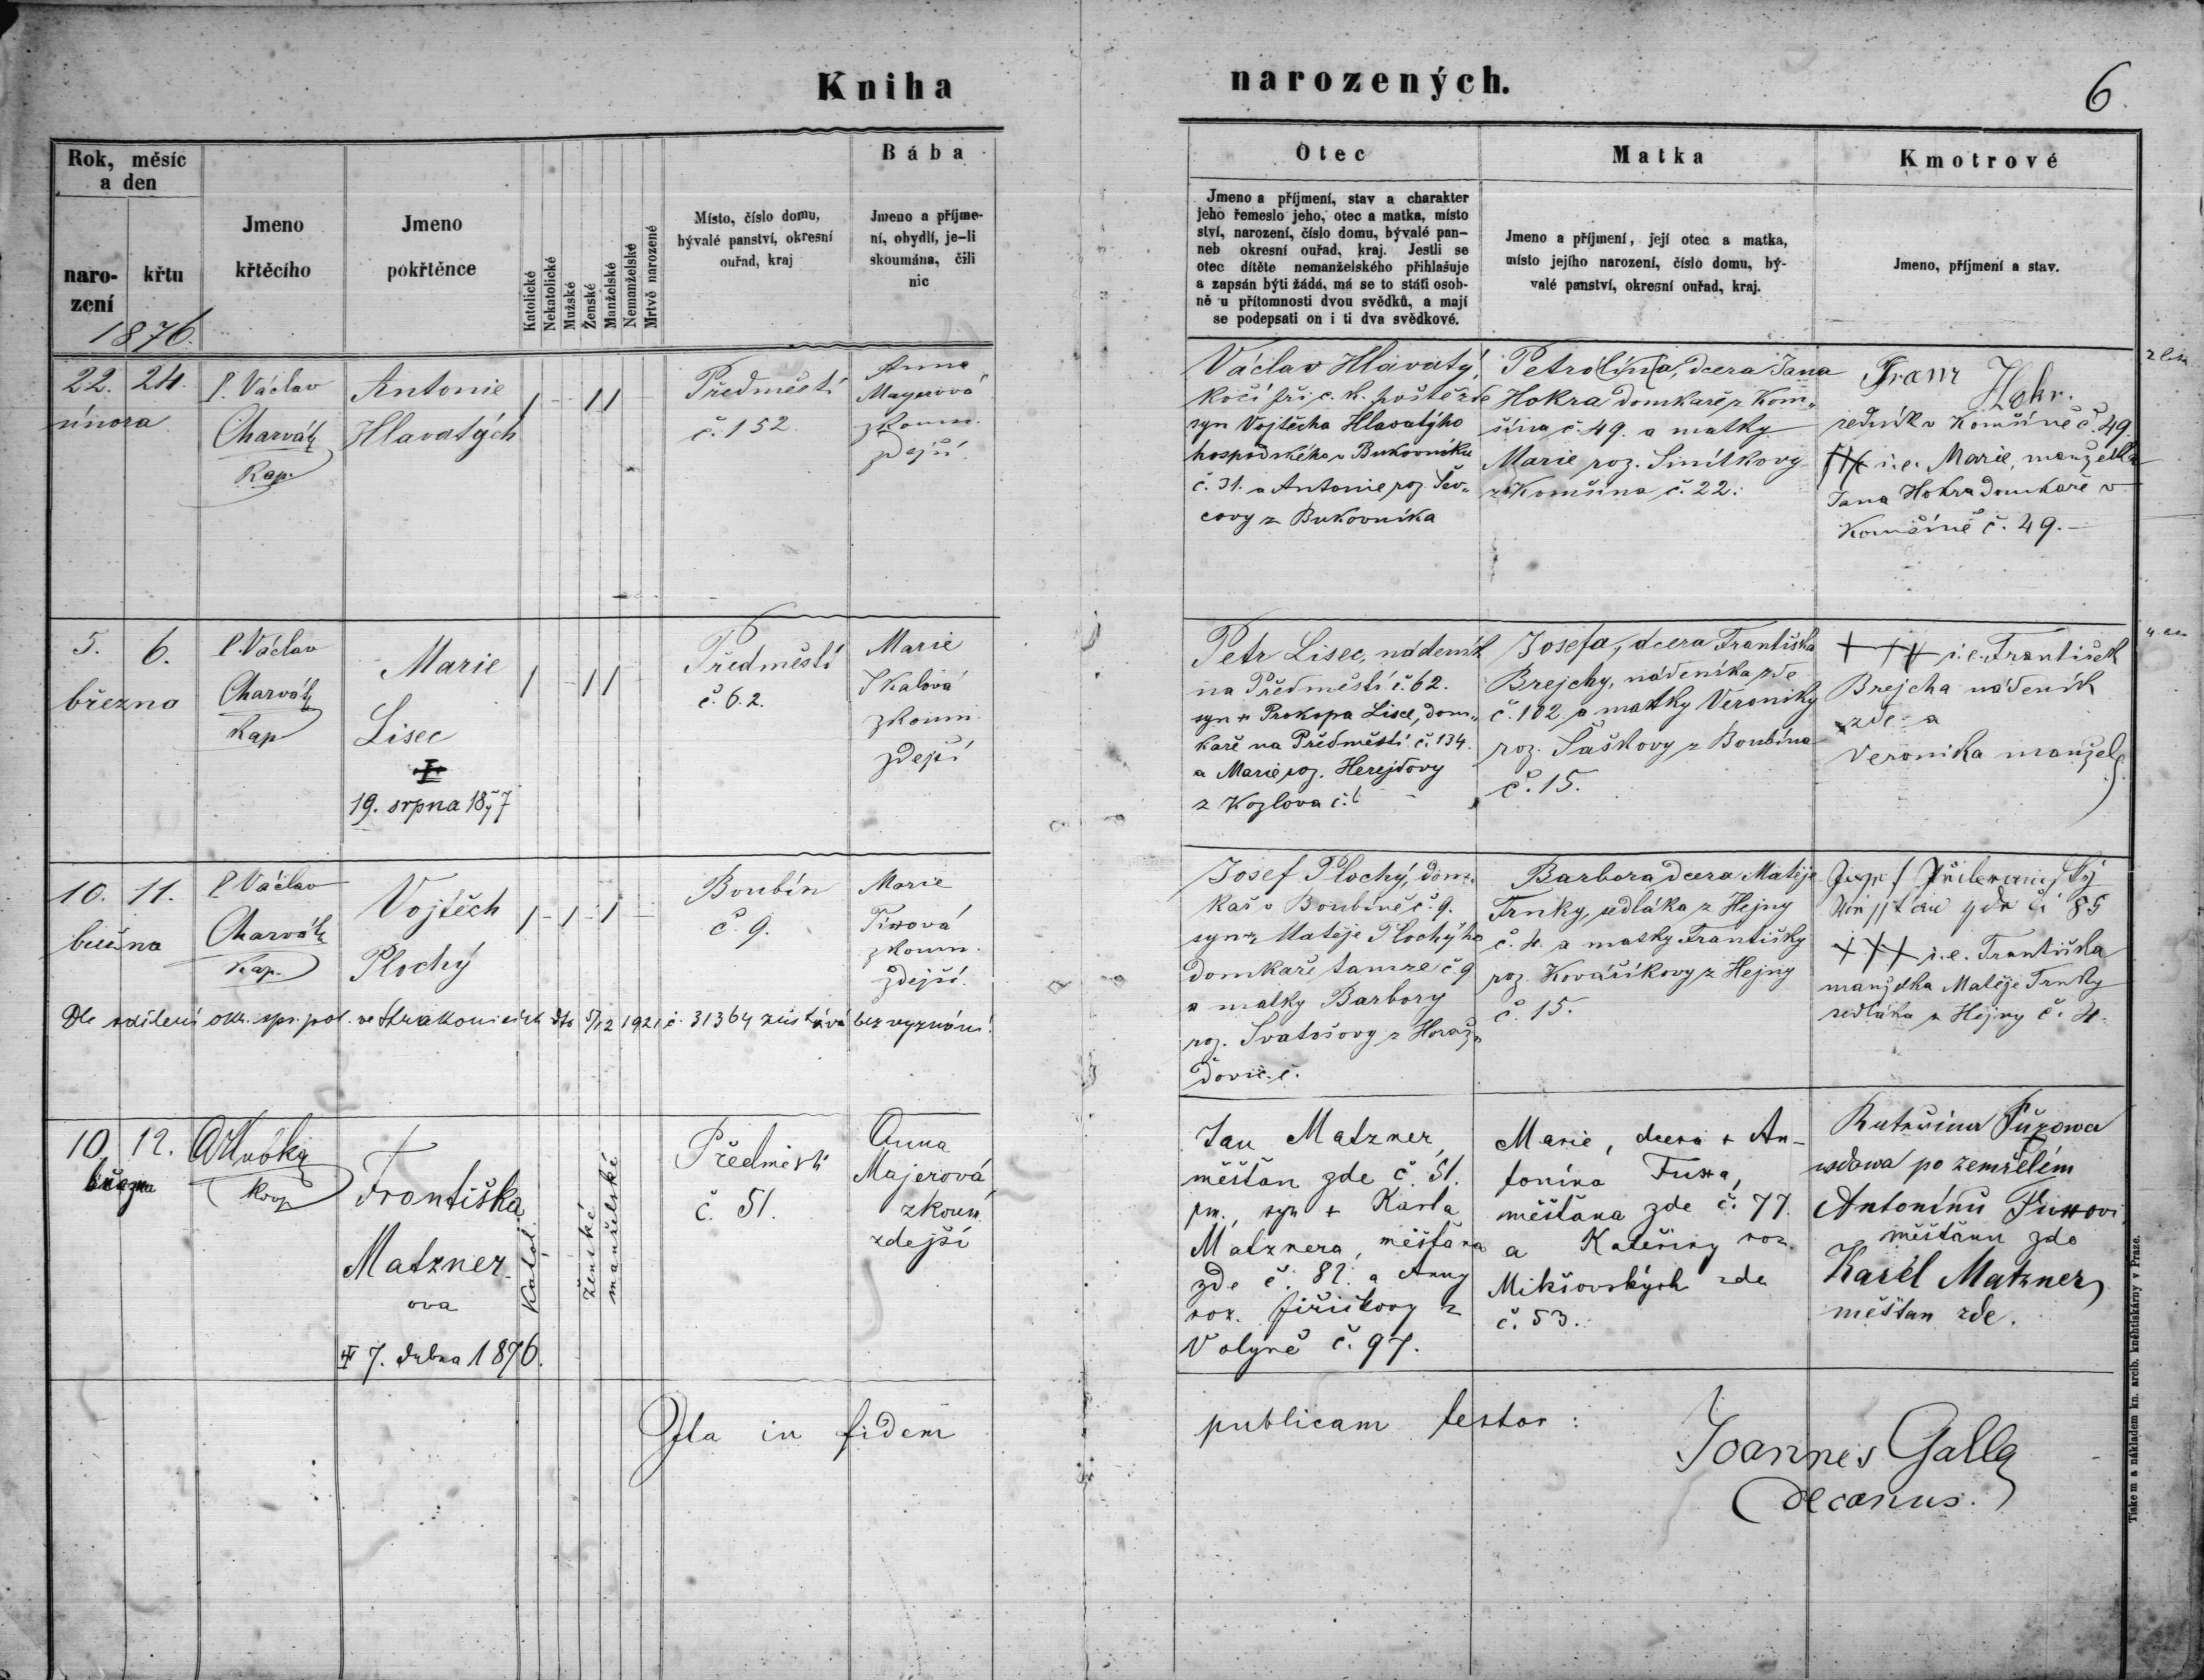 Kniha narozených.
6.
Rok, měsíc
a den
naro-
zení
křtu
Jmeno
křtěcího
Jmeno
pokřtěnce
Katolické
Nekatolické
Mužské
Ženské
Manželské
Nemanželské
Mrtvě narozené
Místo, číslo domu,
bývalé panství, okresní
ouřad, kraj
Bába
Jmeno a příjme-
ní, obydlí, je-li
skoumána, čili
nic
Otec
Jmeno a příjmení, stav a charakter
jeho řemeslo jeho, otec a matka, místo
ství, narození, číslo domu, bývalé pan-
neb okresní ouřad, kraj. Jestli se
otec dítěte nemanželského přihlašuje
a zapsán býti žádá, má se to státi osob-
ně u přítomnosti dvou svědků, a mají
se podepsati on i ti dva svědkové.
Matka
Jmeno a příjmení, její otec a matka,
místo jejího narození, číslo domu, bý-
valé panství, okresní ouřad, kraj.
Kmotrové
Jmeno, příjmení a stav.
1876.
22. 24.
února
P. Václav
Charvát
Kap.
Antonie
Hlavatých
Předměstí
č. 152.
Anna
Mayerová
zkoum.
zdejší
Václav Hlavatý,
kočí při c. k. poště zde
syn Vojtěcha Hlavatýho
hospodského v Bukovníku
č. 31. a Antonie roz. Šev-
covy z Bukovníka
Petrolína, dcera Jana
Hokra domkaře z Kom-
šína č. 49. a matky
Marie roz. Sinítkovy
z Komšína č. 22.
Franz Hokr.
v Komšíně č. 49.
i.e. Marie, manželka
Jana Hokra domkaře v
Komšíně č. 49.-
5. 6.
března
P. Václav
Charvát
Kap
Marie
Lisec
19. srpna 1877
Předměstí
č. 62.
Marie
Skalová
zkoum.
zdejší
Petr Lisec, nádeník
na Předměstí č. 62.
syn + Prokopa Lisce, dom-
kaře na Předměstí č. 134.
a Marie roz. Herejdovy
z Kozlova č.
Josefa, dcera Františka
Brejchy, nádeníka zde
č. 102 a matky Veroniky
roz. Šaškovy z Boubína
č. 15.
+++ i.e. František
Brejcha nádeník
zde a
Veronika manžel.
10. 11.
března
P. Václav
Charvát
Kap.
Vojtěch
Plochý
Boubín
č. 9.
Marie
zkoum.
zdejší.
Dle sdělení okr. spr. pol. ve Strakonicích dto 5/12 1921 č. 31364 zůstává bez vyznání.
Josef Plochý, dom-
kař v Boubíně č. 9.
syn Matěje Plochýho
domkaře tamže č 9
a matky Barbory
roz. Svatošovy z Horaž-
ďovic č.
Barbora dcera Matěje
Trnky, sedláka z Hejny
č. 4. a matky Františky
roz. Kovaříkovy z Hejny
č. 15.
85
+++ i.e. Františka
manželka Matěje Trnky
sedláka z Hejny č. 4.
10. 12.
března
Františka
Matzner-
ova
7. dubna 1876.
Katol.
ženské
manželské
Předměstí
č. 51.
Anna
Majerová
zkoum
zdejší
Jan Matzner,
měšťan zde č. 51.
pm., syn + Karla
Matznera, měšťana
zde č. 82. a Anny
roz. Jiřičkovy z
Volyně č. 97.
Marie, dcera + An-
tonína Fuxa,
měšťana zde č. 77
a Kateřiny roz.
Mikšovských zde
č. 53.
wdowa po zemřelém
Antonínu Fuxovi
měšťanu zde
Karel Matzner
měšťan zde.
Ita in fidem publicam testor:
Joannes Galla
decanus.
Tiskem a nákladem kn. arcib. knihtiskárny v Praze.